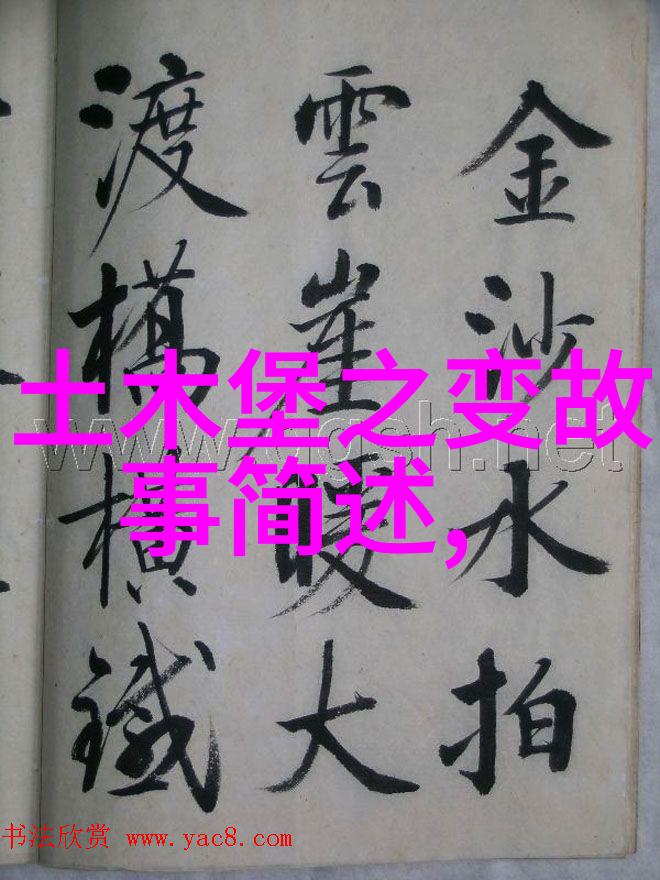 金沙水拍
雲崖暖大
渡橋横鐵
土木堡之变故
事简述,
书法欣赏 www.yac8.com